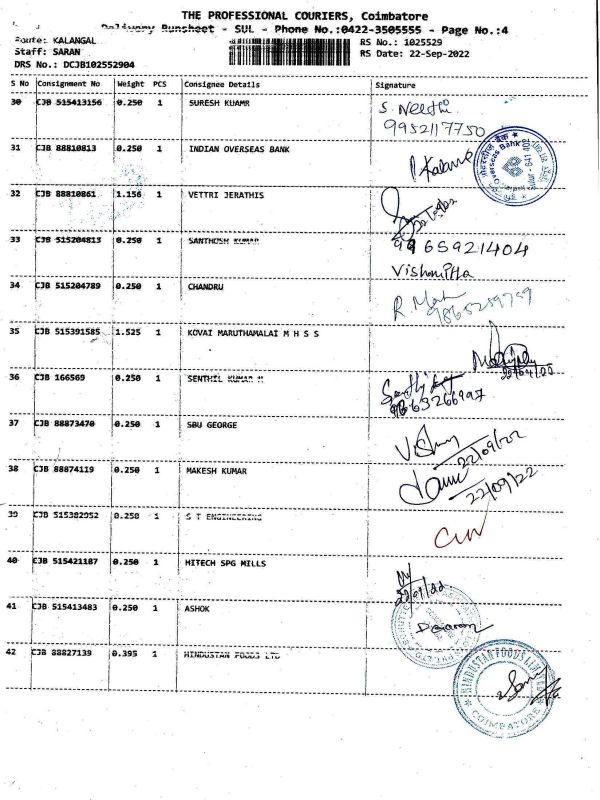 THE PROFESSIONAL COURIERS, Coimbatore
Delivery Runsheet - SUL - Phone No.:0422-3505555 - Page No.:4
Route: KALANGAL
RS No.: 1025529
Staff: SARAN
RS Date: 22-Sep-2022
DRS No.: DCJB102552904
S No Consignment No Weight PCS Consignee Details Signature
30 CJB 515413156 0.250 1 SURESH KUAMR S. Neethi
9952117750
31 CJB 88810813 0.250 1 INDIAN OVERSEAS BANK
32 CJB 88810861 1.156 1 VETTRI JERATHIS
33 CJB 515204813 0.250 1 SANTHOSH KUMAR 9965921404
34 CJB 515204789 0.250 1 CHANDRU R.
9865259759
35 CJB 515391585 1.525 1 KOVAI MARUTHAMALAI M H S S
36 CJB 166569 0.250 1 SENTHIL KUMAR M
37 CJB 88873470 0.250 1 SBU GEORGE
22/09/22
38 CJB 88874119 0.250 1 MAKESH KUMAR
22/09/22
39 CJB 515382952 0.250 1 S T ENGINEERING
40 CJB 515421187 0.250 1 HITECH SPG MILLS
41 CJB 515413483 0.250 1 ASHOK
42 CJB 88827139 0.395 1 HINDUSTAN FOODS LTD
HINDUSTAN FOODS LIMITED
COIMBATORE